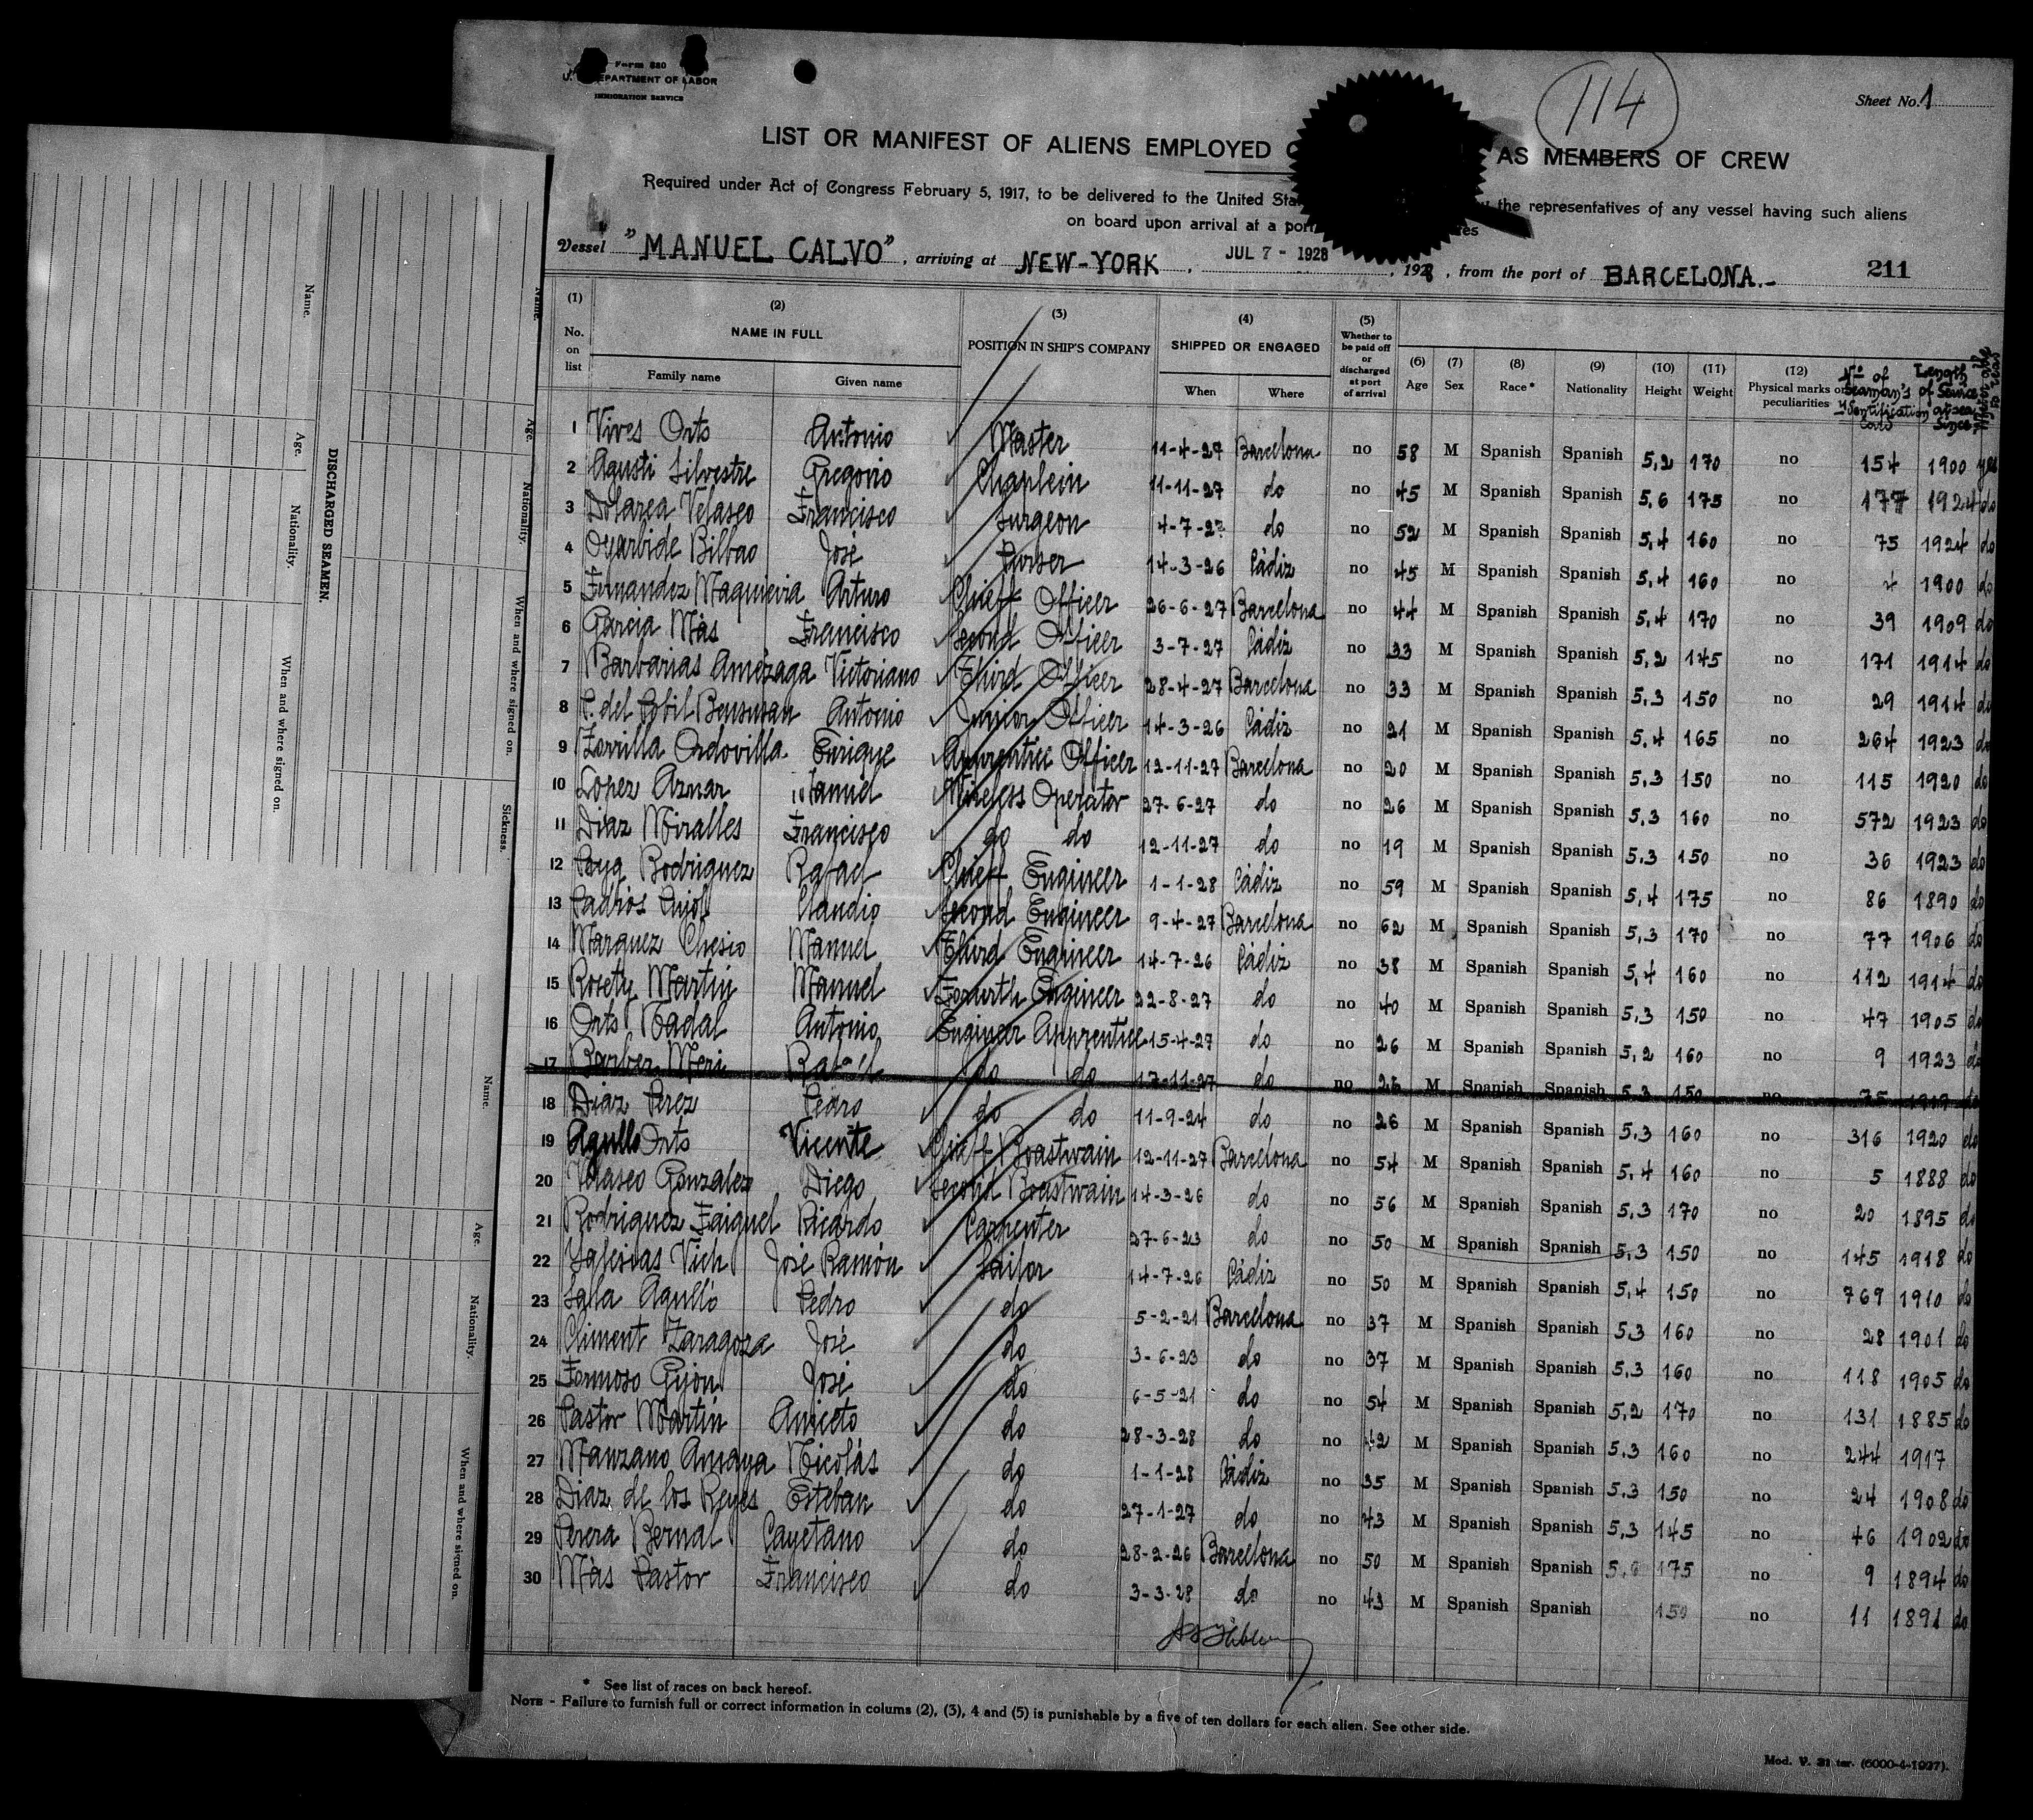 Form 680
U. DEPARTMENT OF LABOR
IMMIGRATION SERVICE
114
Sheet No. 1
LIST OR MANIFEST OF ALIENS EMPLOYED AS MEMBERS OF CREW
Required under Act of Congress February 5, 1917, to be delivered to the United Sta the representatives of any vessel having such aliens
on board upon arrival at a port
Vessel "MANUEL CALVO", arriving at NEW-YORK, JUL 7 - 1928, 1928, from the port of BARCELONA.- 211
(1) No. on list (2) NAME IN FULL Family name Given name (3) POSITION IN SHIP'S COMPANY (4) SHIPPED OR ENGAGED When Where (5) Whether to be paid off or discharged at port of arrival (6) Age (7) Sex (8) Race* (9) Nationality (10) Height (11) Weight (12) Physical marks or peculiarities Nº of Seaman's Identification Card Length of Service at sea Since
1 Vives Orts Antonio Master 11-4-27 Barcelona no 58 M Spanish Spanish 5,2 170 no 154 1900 yes
2 Agusti Silvestre Gregorio Chaplein 11-11-27 do no 45 M Spanish Spanish 5,6 175 no 177 1924 do
3 Dolarea Velasco Francisco Surgeon 4-7-27 do no 52 M Spanish Spanish 5,4 160 no 75 1924 do
4 Oyarbide Bilbao José Purser 14-3-26 Cádiz no 45 M Spanish Spanish 5,4 160 no 4 1900 do
5 Fernandez Maquieira Arturo Chieff Officer 26-6-27 Barcelona no 44 M Spanish Spanish 5,4 170 no 39 1909 do
6 Garcia Màs Francisco Second Officer 3-7-27 Cádiz no 33 M Spanish Spanish 5,2 145 no 171 1914 do
7 Barbarias Amézaga Victoriano Third Officer 28-4-27 Barcelona no 33 M Spanish Spanish 5,3 150 no 29 1914 do
8 P. del Pobil Bensusan Antonio Junior Officer 14-3-26 Cádiz no 21 M Spanish Spanish 5,4 165 no 264 1923 do
9 Zorrilla Ordovilla Enrique Apprentice Officer 12-11-27 Barcelona no 20 M Spanish Spanish 5,3 150 no 115 1920 do
10 López Aznar Manuel Wireless Operator 27-6-27 do no 26 M Spanish Spanish 5,3 160 no 572 1923 do
11 Diaz Miralles Francisco do do 12-11-27 do no 19 M Spanish Spanish 5,3 150 no 36 1923 do
12 Rodriguez Rafael Chieff Engineer 1-1-28 Cádiz no 59 M Spanish Spanish 5,4 175 no 86 1890 do
13 Padrós Claudio Second Engineer 9-4-27 Barcelona no 62 M Spanish Spanish 5,3 170 no 77 1906 do
14 Marquez Chesio Manuel Third Engineer 14-7-26 Cádiz no 38 M Spanish Spanish 5,4 160 no 112 1914 do
15 Rosety Martin Manuel Fourth Engineer 22-8-27 do no 40 M Spanish Spanish 5,3 150 no 47 1905 do
16 Orts Nadal Antonio Engineer Apprentice 15-4-27 do no 26 M Spanish Spanish 5,2 160 no 9 1923 do
17 Barber Meri Rafael do do 17-11-27 do no 26 M Spanish Spanish 5,3 150 no 75 1919 do
18 Diaz Perez Pedro do do 11-9-24 do no 26 M Spanish Spanish 5,3 160 no 316 1920 do
19 Agullo Orts Vicente Chieff Boastwain 12-11-27 Barcelona no 54 M Spanish Spanish 5,4 160 no 5 1888 do
20 Velasco Gonzalez Diego Second Boastwain 14-3-26 do no 56 M Spanish Spanish 5,3 170 no 20 1895 do
21 Rodriguez Faiguel Ricardo Carpenter 27-6-23 do no 50 M Spanish Spanish 5,3 150 no 145 1918 do
22 Yglesias Vich José Ramón Sailor 14-7-26 Cádiz no 50 M Spanish Spanish 5,4 150 no 769 1910 do
23 Lalla Agulló Pedro do 5-2-21 Barcelona no 37 M Spanish Spanish 5,3 160 no 28 1901 do
24 Climent Zaragoza José do 3-6-23 do no 37 M Spanish Spanish 5,3 160 no 118 1905 do
25 Formoso Gijón José do 6-5-21 do no 54 M Spanish Spanish 5,2 170 no 131 1885 do
26 Pastor Martin Aniceto do 28-3-28 do no 42 M Spanish Spanish 5,3 160 no 244 1917
27 Manzano Amaya Nicolás do 1-1-28 Cádiz no 35 M Spanish Spanish 5,3 150 no 24 1908 do
28 Diaz de los Reyes Esteban do 27-1-27 do no 43 M Spanish Spanish 5,3 145 no 46 1902 do
29 Perera Bernal Cayetano do 28-2-26 Barcelona no 50 M Spanish Spanish 5,6 175 no 9 1894 do
30 Màs Pastor Francisco do 3-3-28 do no 43 M Spanish Spanish 150 no 11 1891 do
* See list of races on back hereof.
NOTE - Failure to furnish full or correct information in colums (2), (3), 4 and (5) is punishable by a five of ten dollars for each alien. See other side.
Mod. V. 31 ter. (6000-4-1927).
DISCHARGED SEAMEN.
Name. Age. Nationality. When and where signed on.
Name. Age. Nationality. When and where signed on. Sickness.
Name. Age. Nationality. When and where signed on.